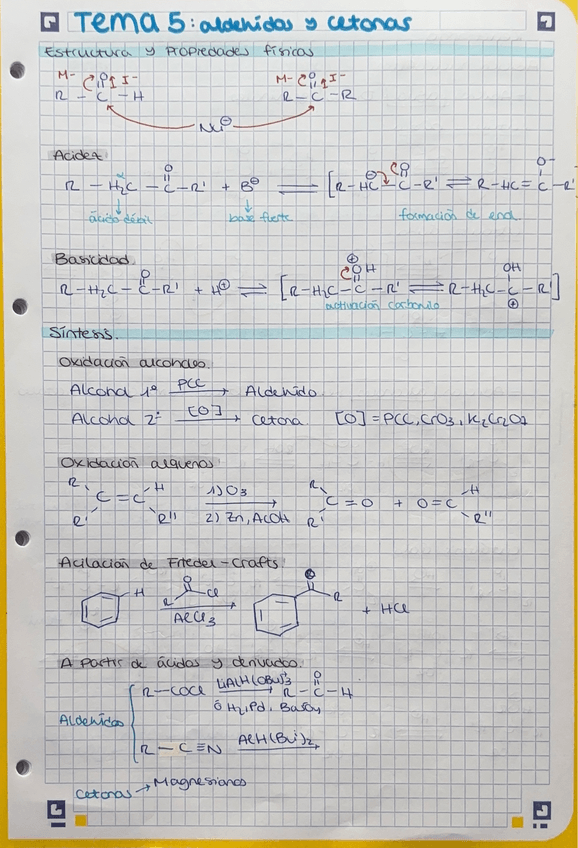 Tema 5: aldehidos y cetonas
Estructura y propiedades físicas
M- O I- M- O I-
R - C - H R - C - R
Nu⊖
Acidez
O O O-
R - H₂C - C - R' + B⊖ ⇌ [R - HC⊖ - C - R' ⇌ R - HC = C - R'
ácido débil base fuerte formación de enol.
Basicidad
O ⊕OH OH
R-H₂C-C-R' + H⊕ ⇌ [R-H₂C-C-R' ⇌ R-H₂C-C-R']
⊕
activación carbonilo
Síntesis.
Oxidación alcoholes.
Alcohol 1º PCC → Aldehido
Alcohol 2º [O] → cetona [O] = PCC, CrO₃, K₂Cr₂O₇
Oxidación alquenos
R H 1) O₃ R H
C = C → C = O + O = C
R' R'' 2) Zn, AcOH R' R''
Acilación de Friedel-Crafts
H O Cl O
R → R + HCl
AlCl₃
A partir de ácidos y derivados.
R-COCl LiAlH(OBu)₃ → R - C - H
O
ó H₂, Pd, BaSO₄
Aldehidos
R - C ≡ N AlH(Bui)₂ →
Cetonas → Magnesianos